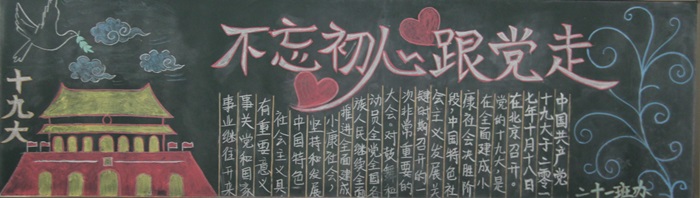 十九大
不忘初心跟党走
中国共产党
十九大于二零一
七年十月十八日
在北京召开。
党的十九大,是
在全面建成小
康社会决胜阶
段中国特色社
会主义发展关
键时期召开的一
次非常重要的
大会,对鼓舞和
动员全党全国各
族人民继续全面
推进全面建成
小康社会,
坚持和发展
中国特色
社会主义具
有重要意义
事关党和国家
事业继往开来
二十二班办